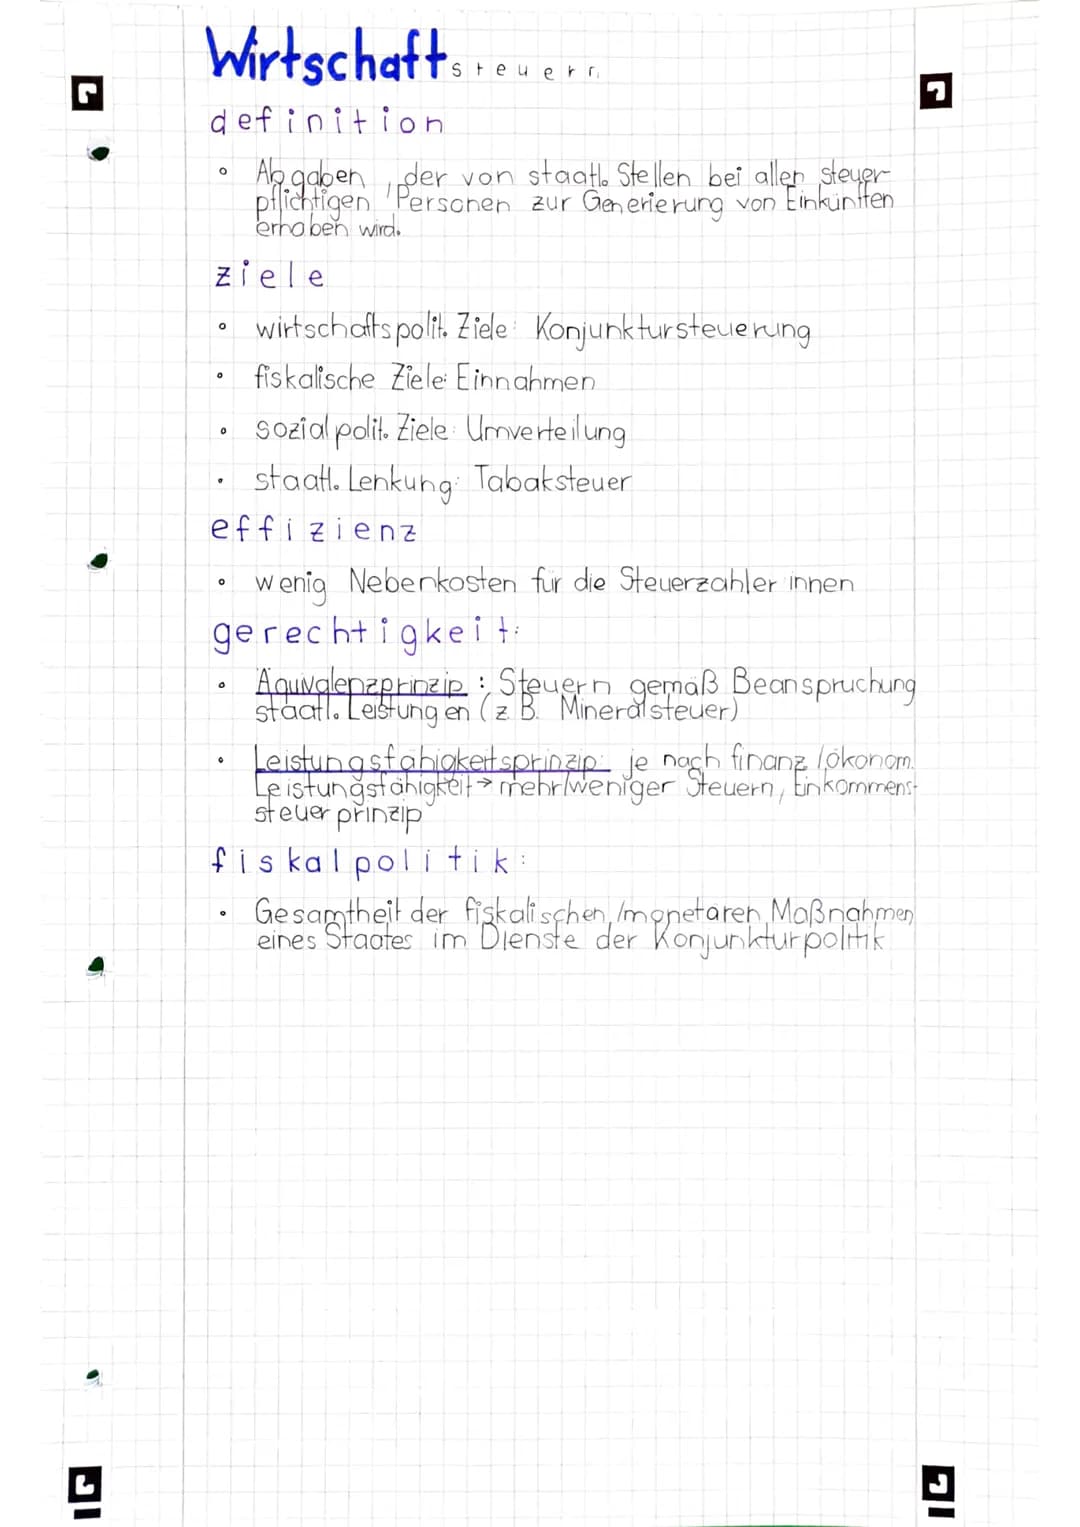 Wirtschaft steuern
definition
• Abgaben, der von staatl. Stellen bei allen steuer-
pflichtigen Personen zur Generierung von Einkünften
erhoben wird.
ziele
• wirtschaftspolit. Ziele: Konjunktursteuerung
• fiskalische Ziele: Einnahmen
• sozialpolit. Ziele: Umverteilung
• staatl. Lenkung: Tabaksteuer
effizienz
• wenig Nebenkosten für die Steuerzahler innen
gerechtigkeit:
• Äquivalenzprinzip: Steuern gemäß Beanspruchung
staatl. Leistungen (z.B. Mineralsteuer)
• Leistungsfähigkeitsprinzip: je nach finanz/ökonom.
Leistungsfähigkeit → mehr/weniger Steuern, Einkommens-
steuerprinzip
fiskalpolitik:
• Gesamtheit der fiskalischen/monetären Maßnahmen
eines Staates im Dienste der Konjunkturpolitik